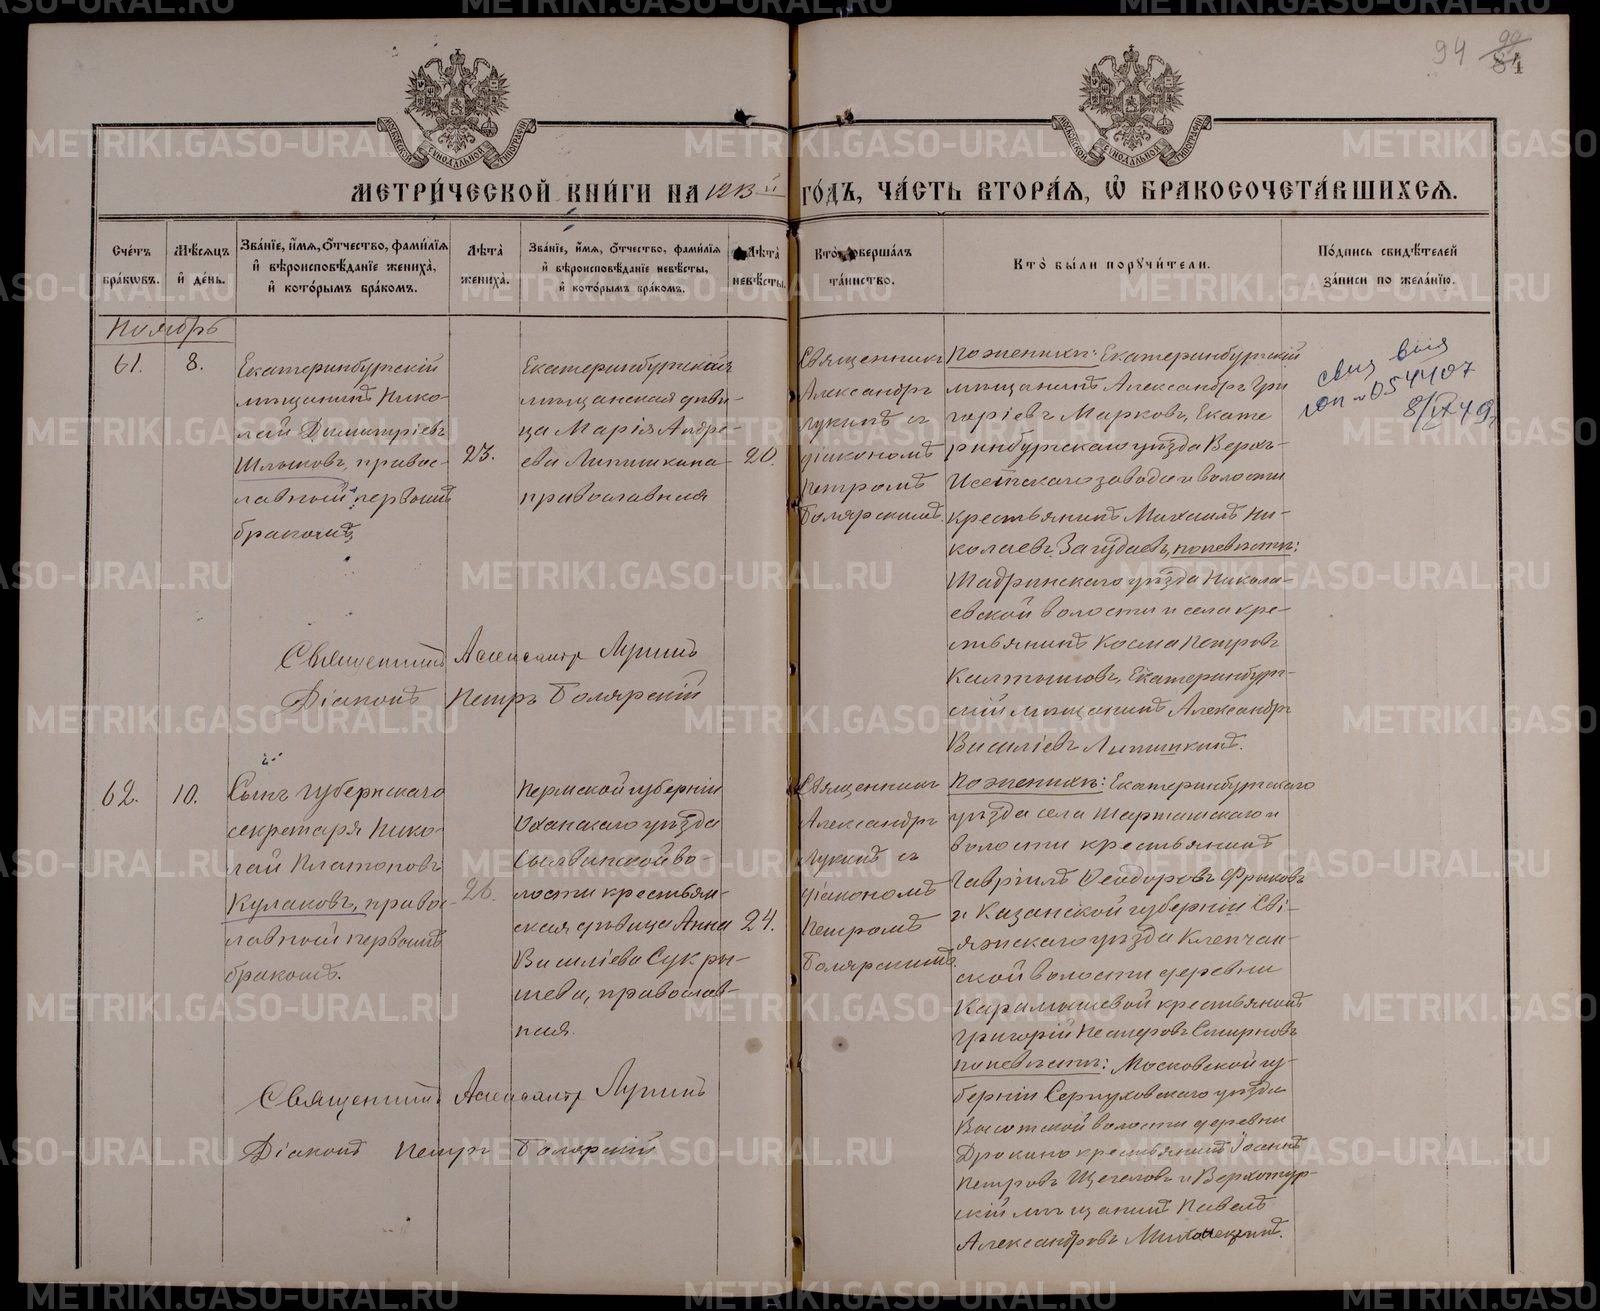 94 90 84
МЕТРИ́ЧЕСКОЙ КНИ́ГИ НА 1913й ГО́ДЪ, ЧА́СТЬ ВТОРА́Я, Ѽ БРАКОСОЧЕТА́ВШИХСЯ.
Сче́тъ бра́ковъ.
Мѣ́сяцъ и де́нь.
Зва́нїе, и́мя, ѻ́тчество, фами́лїя и вѣроисповѣ́данїе жениха̀, и кото́рымъ бра́комъ.
Лѣта̀ жениха̀.
Зва́нїе, и́мя, ѻ́тчество, фами́лїя и вѣроисповѣ́данїе невѣ́сты, и кото́рымъ бра́комъ.
Лѣта̀ невѣ́сты.
Кто̀ соверша́лъ та́инство.
Кто̀ бы́ли порꙋчи́тели.
По́дпись свидѣ́телей за́писи по жела́нїю.
Ноябрь
61.
8.
Екатеринбургскій
мѣщанинъ Нико-
лай Димитріевъ
Шлыковъ, правос-
лавный, первымъ
бракомъ,
23.
Екатеринбургская
мѣщанская дѣви-
ца Марія Андре-
ева Липишкина
православная
20.
Священникъ
Александръ
Лукинъ съ
діакономъ
Петромъ
Болярскимъ.
По женихѣ: Екатеринбургскій
мѣщанинъ Александръ Гри
горіевъ Марковъ, Екате
ринбургскаго уѣзда Верхъ-
Исетскаго завода и волости
крестьянинъ Михаилъ Ни-
колаевъ Загудаевъ, по невѣстѣ:
Шадринскаго уѣзда Никола-
евской волости и села кре-
стьянинъ Косма Петровъ
Калтышовъ, Екатеринбург-
скій мѣщанинъ Александръ
Василіевъ Липишкинъ.
8/IX 49
Священникъ Александръ Лукинъ
Діаконъ Петръ Болярскій
62.
10.
Сынъ губернскаго
секретаря Нико-
лай Платоновъ
Кулаковъ, правос-
лавный первымъ
бракомъ.
26.
Пермской губерніи
Оханскаго уѣзда
Сылвинской во-
лости крестьян-
ская дѣвица Анна
Василіева Сукры-
шева, православ-
ная.
24.
Священникъ
Александръ
Лукинъ съ
діакономъ
Петромъ
Болярскимъ
По женихѣ: Екатеринбургскаго
уѣзда села Шарташскаго и
волости крестьянинъ
Гавріилъ Ѳеодоровъ Фрыковъ
и Казанской губерніи Сві-
яжскаго уѣзда Клепчан-
ской волости деревни
Карамышевой крестьянинъ
Григорій Несторовъ Смирновъ
по невѣстѣ: Московской гу-
берніи Серпуховскаго уѣзда
Высотской волости деревни
Дракино крестьянинъ Іоаннъ
Петровъ Щегловъ и Верхотур-
скій мѣщанинъ Павелъ
Александровъ
Священникъ Александръ Лукинъ
Діаконъ Петръ Болярскій
METRIKI.GASO-URAL.RU